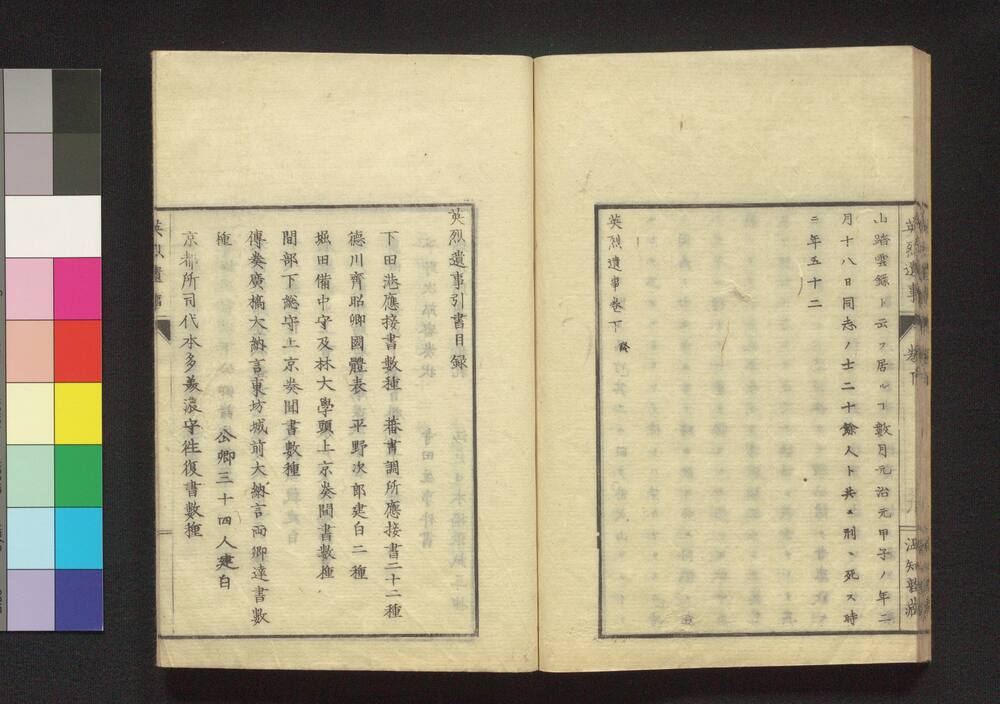 山踏雲録ト云ス居ルヿ數月元治元甲子ノ年二
月十八日同志ノ士二十餘人ト共ニ刑ニ死ス時
ニ年五十二
英烈遺事巻下 終
英烈遺事 巻下
温知
英烈遺事引書目録
下田港應接書數種 蕃書調所應接書二十二種
德川齊昭卿國體表 平野次郎建白二種
堀田備中守及林大學頭上京奏聞書數種
間部下總守上京奏聞書數種
傳奏廣橋大納言東坊城前大納言両卿達書數
種 公卿三十四人建白
京都所司代本多美濃守往復書數種
英烈遺事